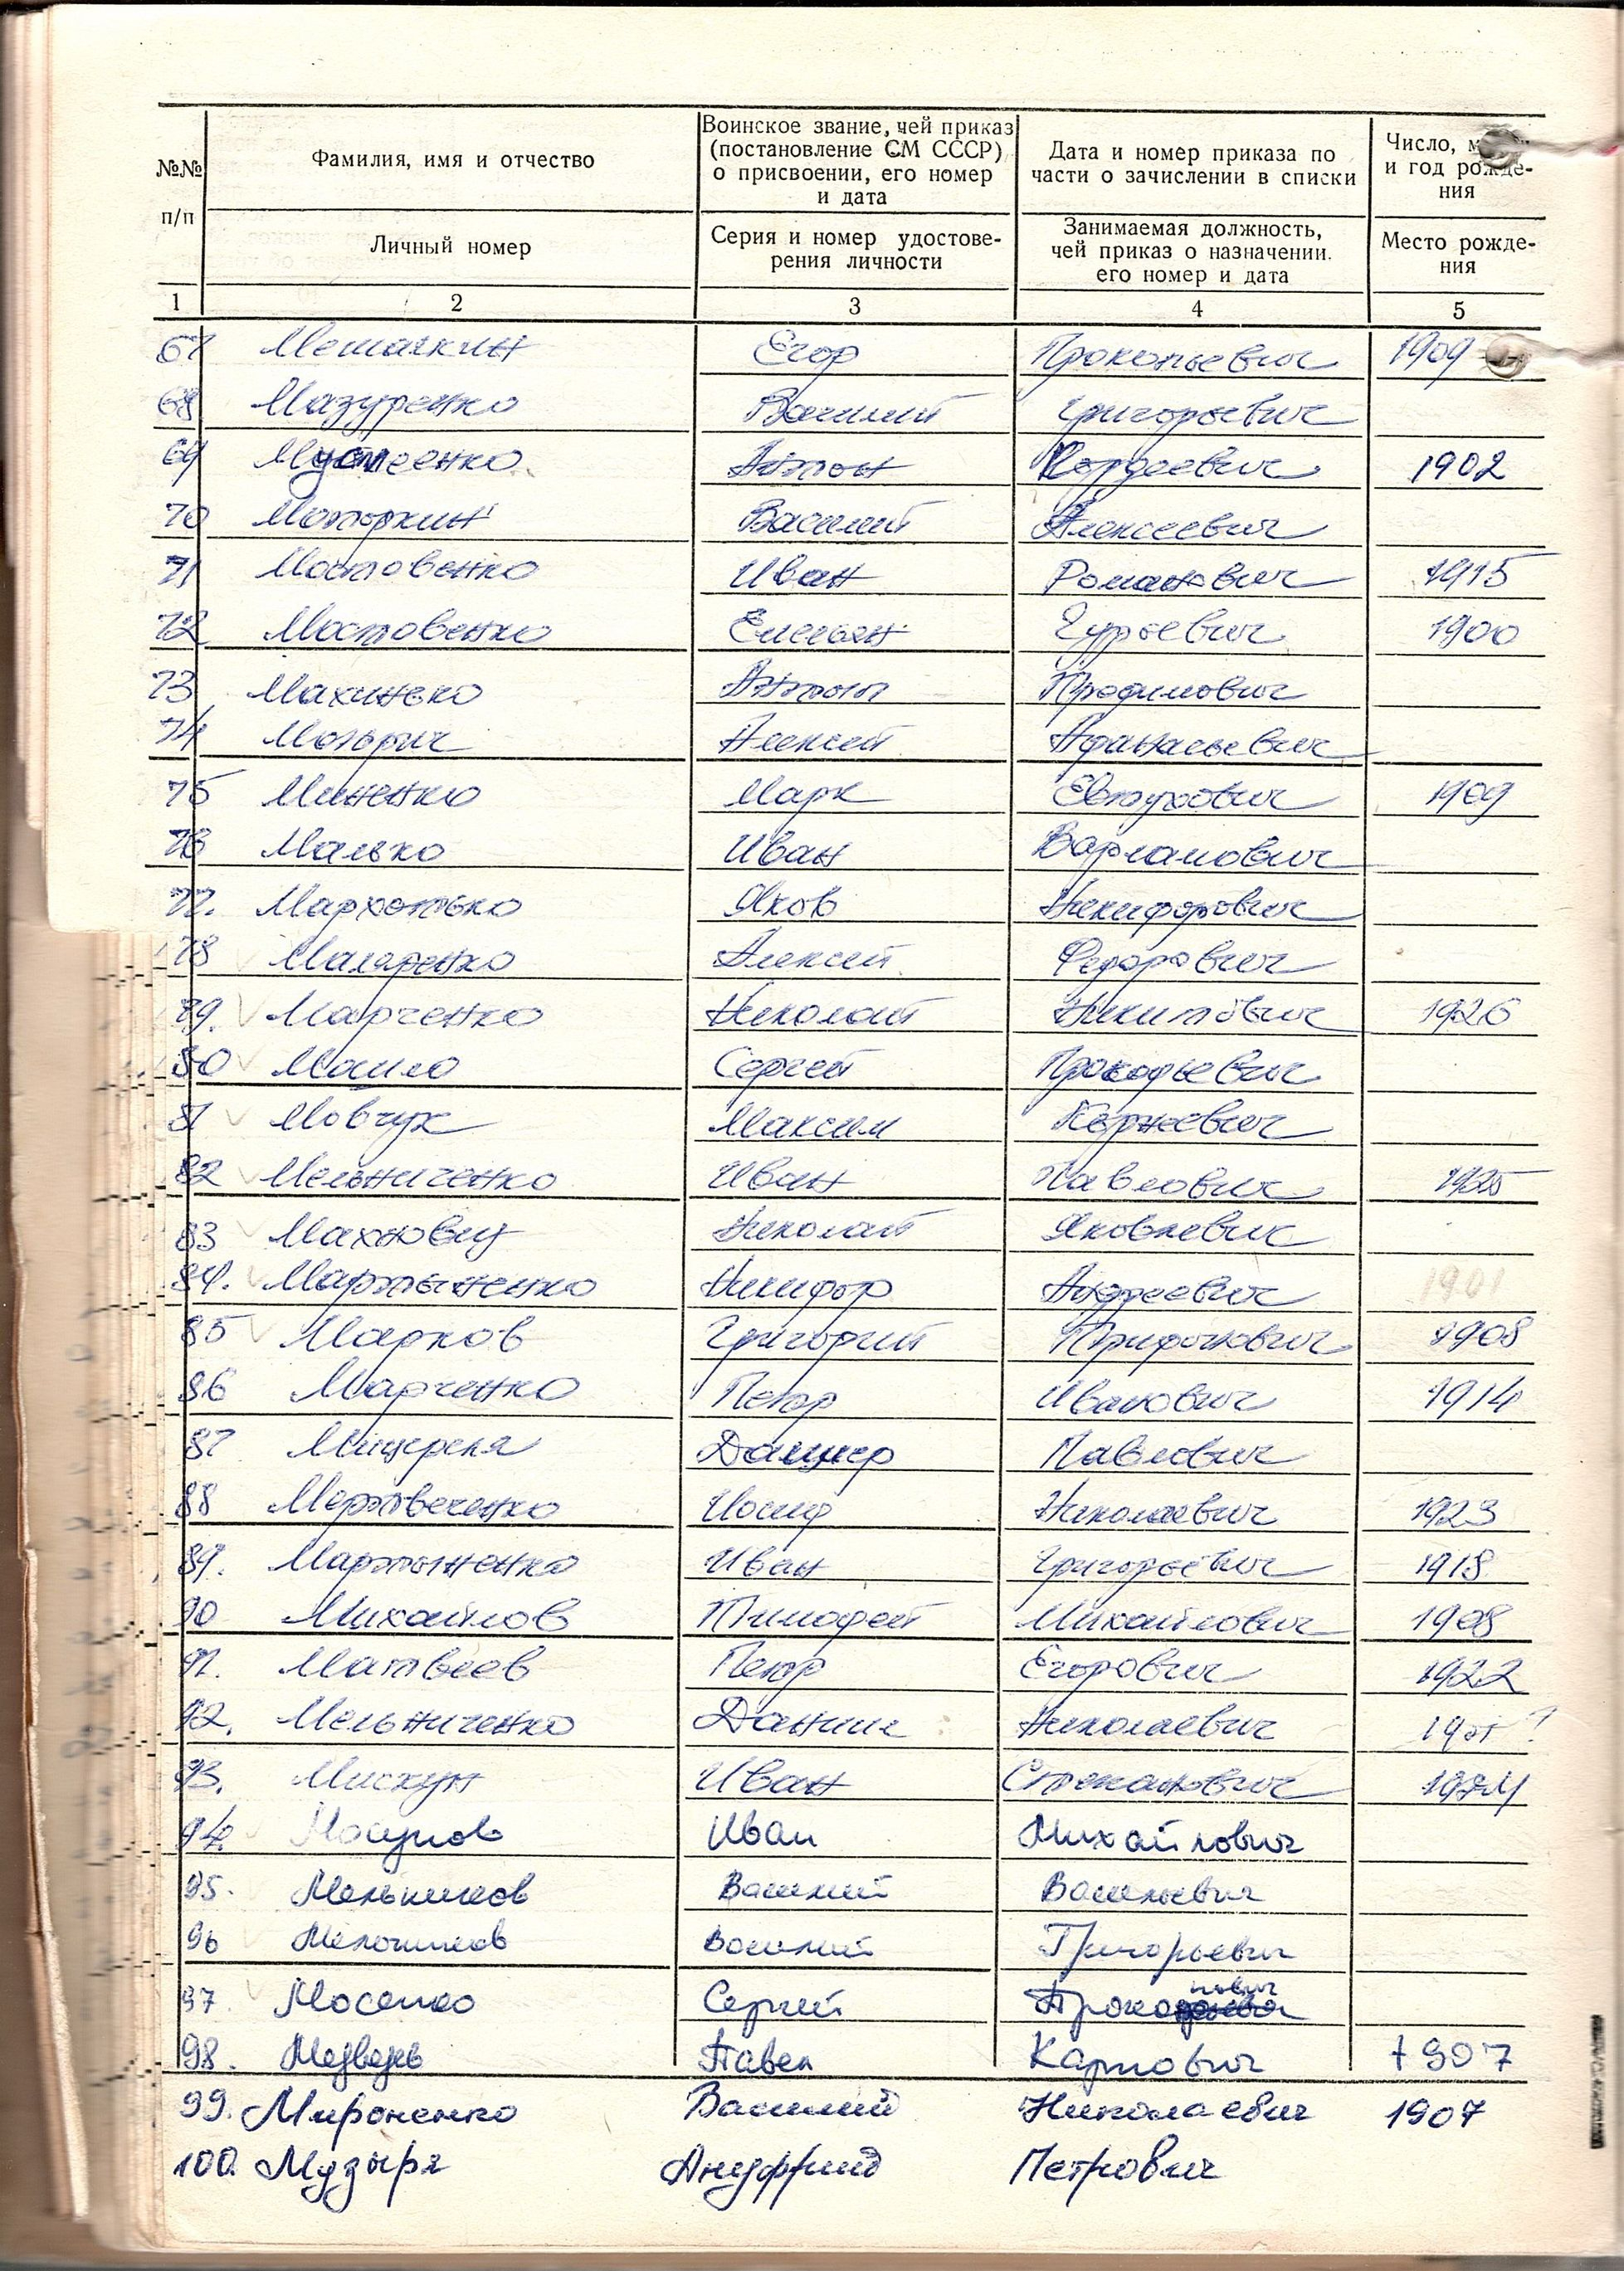 №№ п/п
Фамилия, имя и отчество
Личный номер
Воинское звание, чей приказ
(постановление СМ СССР)
о присвоении, его номер
и дата
Серия и номер удостове-
рения личности
Дата и номер приказа по
части о зачислении в списки
Занимаемая должность,
чей приказ о назначении.
его номер и дата
Число,
и год рожде-
ния
Место рожде-
ния
1 2 3 4 5
67 Егор Прокопьевич 1909
68 Мазуренко Василий Григорьевич
69 Антон Гордеевич 1902
70 Моторкин Василий Алексеевич
71 Мостовенко Иван Романович 1915
72 Мостовенко Емельян Гурьевич 1900
73 Махинько Антон Трофимович
74 Алексей Афанасьевич
75 Миненко Марк Евтухович 1909
76 Малько Иван Варламович
77. Мархотько Яков Никифорович
78 Маляренко Алексей Федорович
79. Марченко Николай Никитович 1926
80 Сергей Прокофьевич
81 Мовчух Максим Корнеевич
82 Мельниченко Иван Павлович 1925
83 Махновец Николай Яковлевич
84. Мартыненко Никифор Андреевич 1901
85 Марков Григорий Трифонович 1908
86 Марченко Петр Иванович 1914
87 Мищеряк Павлович
88 Мертвеченко Иосиф Николаевич 1923
89. Мартыненко Иван Григорьевич 1918
90 Михайлов Тимофей Михайлович 1908
91. Матвеев Петр Егорович 1922
92. Мельниченко Данил Николаевич ?
93. Мискун Иван Степанович
94. Мосунов Иван Михайлович
95. Мельников Василий Васильевич
96 Василий Григорьевич
97 Мосенко Сергей
98. Медведь Павел Карпович 1907
99. Мироненко Василий Николаевич 1907
100. Музыря Петрович